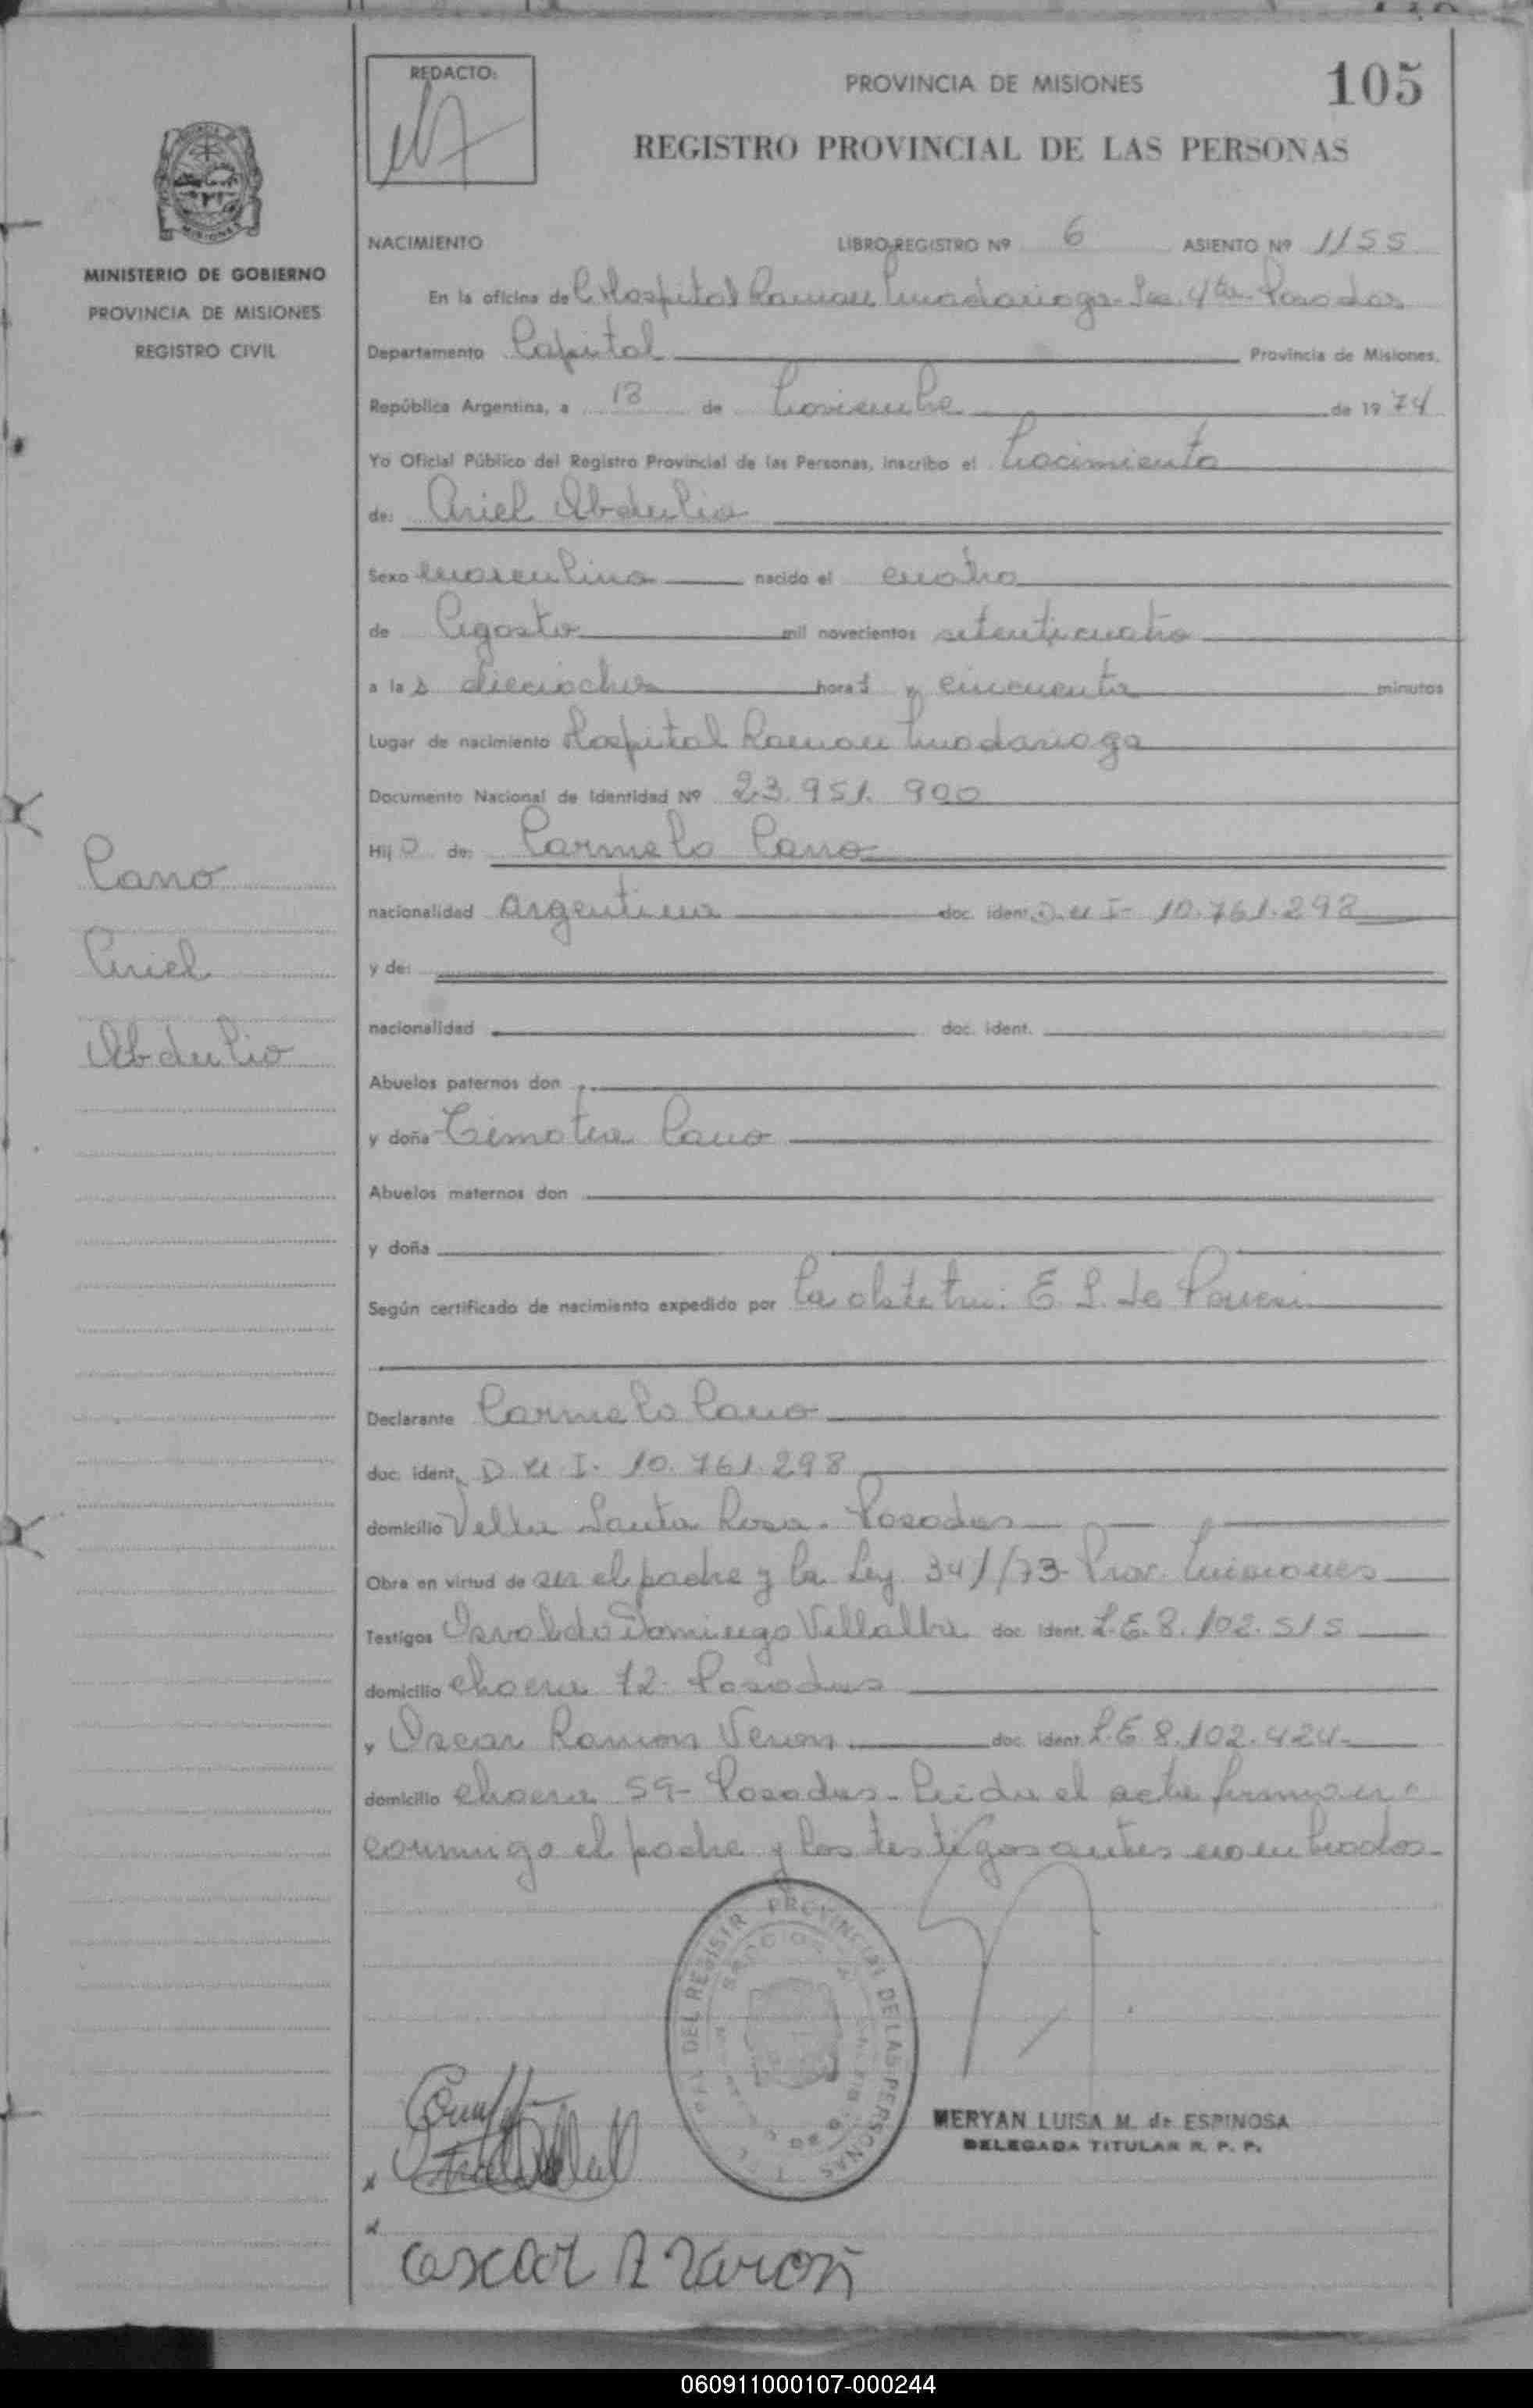 REDACTO:
PROVINCIA DE MISIONES
105
REGISTRO PROVINCIAL DE LAS PERSONAS
MISIONES
MINISTERIO DE GOBIERNO
PROVINCIA DE MISIONES
REGISTRO CIVIL
NACIMIENTO LIBRO-REGISTRO Nº 6 ASIENTO Nº 1155
En la oficina del Hospital Ramon Madariaga - Sec. 4ta Posadas
Departamento Capital Provincia de Misiones.
República Argentina, a 13 de Noviembre de 1974
Yo Oficial Público del Registro Provincial de las Personas, inscribo el Nacimiento
de: Ariel Obdulio
Sexo masculino nacido el cuatro
de Agosto mil novecientos setenticuatro
a las dieciocho horas y cincuenta minutos
Lugar de nacimiento Hospital Ramon Madariaga
Documento Nacional de Identidad Nº 23.951.900
Hijo de: Carmelo Cano
nacionalidad argentina doc. ident. D.N.I- 10.761.298
y de:
nacionalidad doc. ident.
Abuelos paternos don
y doña Timotea Cano
Abuelos maternos don
y doña
Según certificado de nacimiento expedido por la obstetri: E. L. de
Declarante Carmelo Cano
doc. ident. D.N.I. 10.761.298
domicilio Villa Santa Rosa. Posadas
Obra en virtud de ser el padre y la Ley 341/73- Prov. Misiones
Testigos Osvaldo Domingo Villalba doc. ident. L.E. 8.102.515
domicilio chacra 12- Posadas
y Oscar Ramon Veron doc. ident. L.E 8.102.424-
domicilio chacra 59- Posadas- Leida el acta firman
conmigo el padre y los testigos antes nombrados-
Cano
Ariel
Obdulio
DEL REGISTR PROVINCIAL DE LAS PERSONAS
MERYAN LUISA M. de ESPINOSA
DELEGADA TITULAR R. P. P.
oscar R veron
060911000107-000244